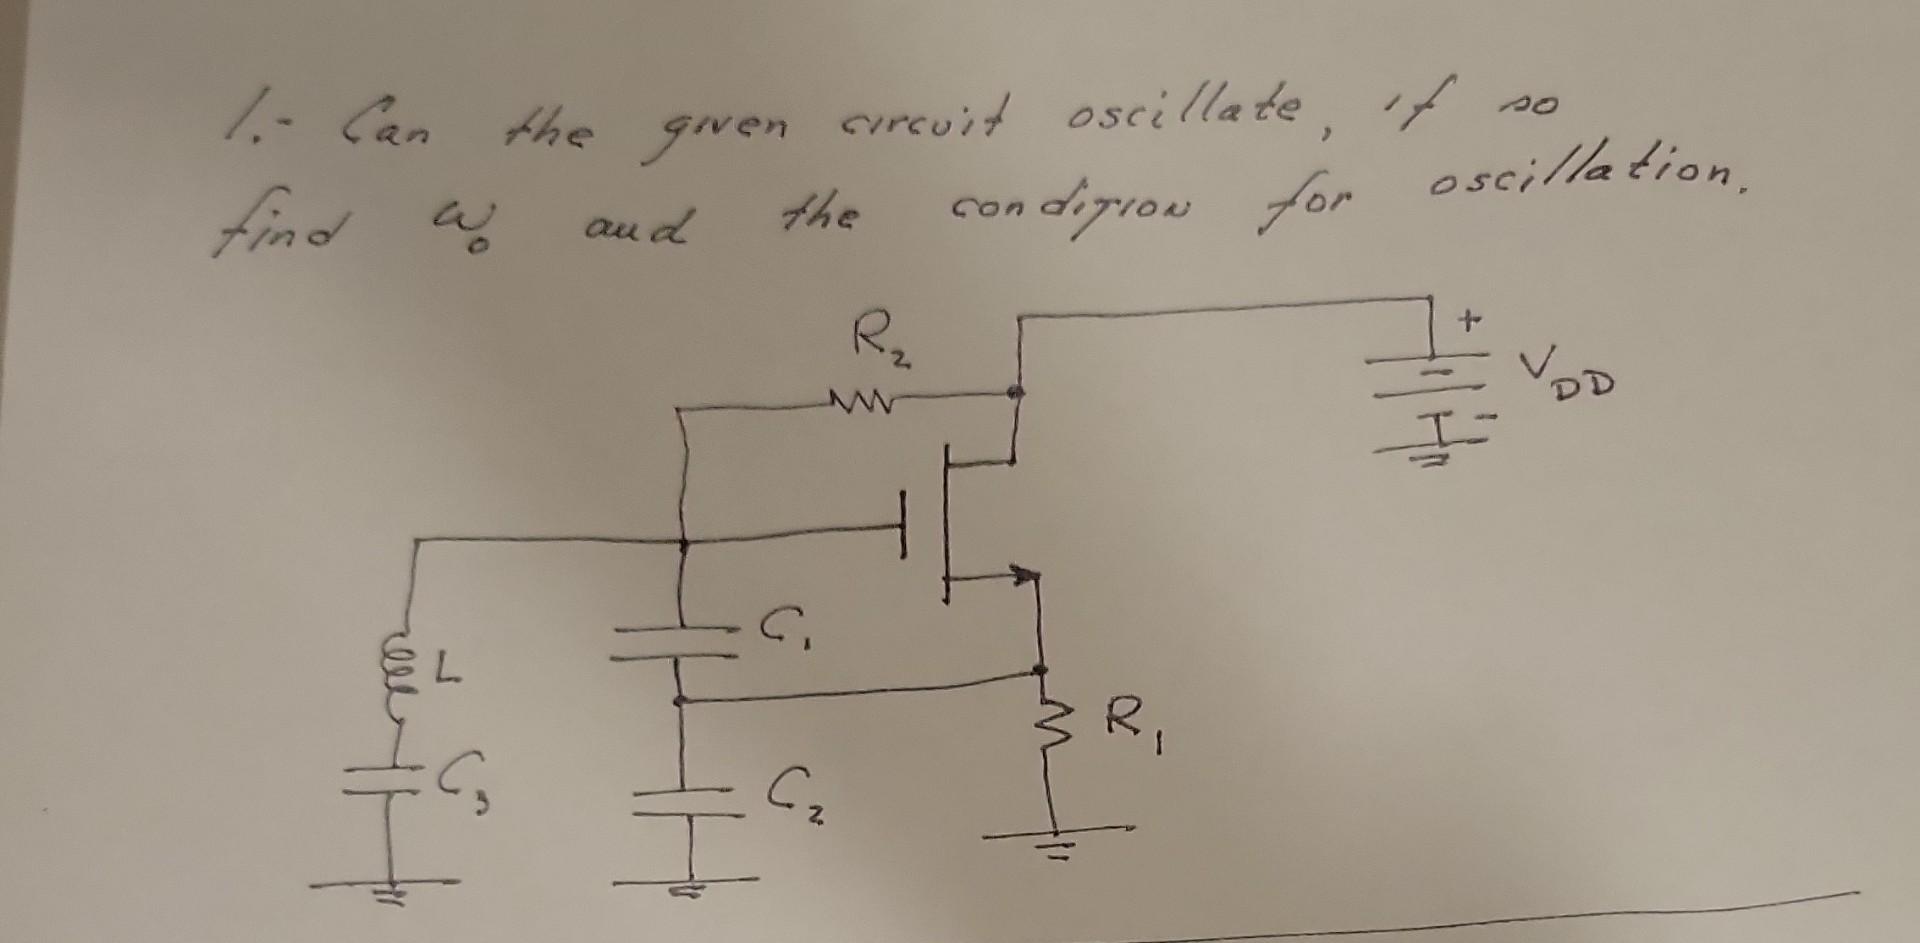 1.- Can the given circuit oscillate, if so
find ω₀ and the condition for oscillation.
R₂
+
V_DD
-
C₁
L
R₁
C₃
C₂